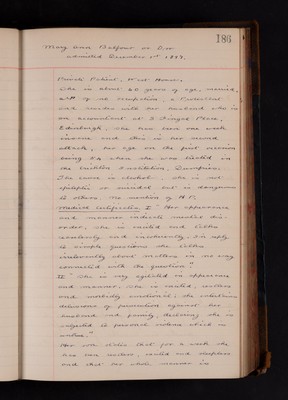 186
Mary Ann Balfour or Dow
admitted December 1st
Private Patient, West House.
She is about 60 years of age, married,
of no occupation, a Protestant
and resides with her husband who is
an accountant at 2 Dingel Place,
Edinburgh, she has been one week
insane and this is her second
attack, her age on the first occasion
being 54 when she was treated in
the Crichton Institution, Dumfries.
The cause is alcohol, she is not
epileptic or suicidal but is dangerous
to others. No mention of H.P.
Medical Certificates I "Her appearance
and manner indicate mental dis-
order, she is excited and talks
and incoherently in reply
to simple questions she talks
incoherently about matters in no way
connected with the question."
II "She is very agitated in appearance
and manner, she is excited, restless
and morbidly emotional, she
delusions of persecution against her
husband and family, declaring she is
subjected to personal violence which is
untrue."
Her son states that for a week she
has been restless, excited and sleepless
and that her whole manner is